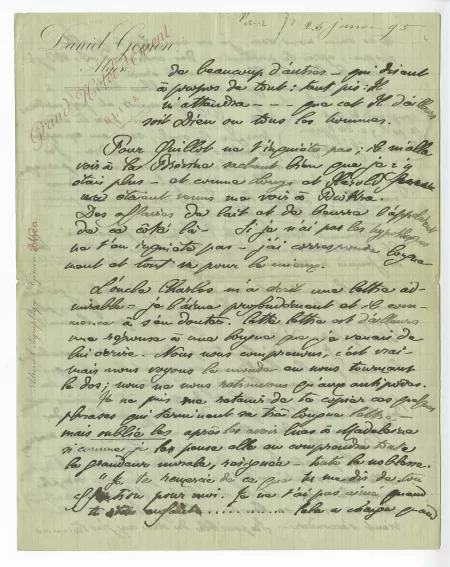 25 janv. 95
Daniel Génson
Alger
Grand Hôtel d'Orient
de beaucoup d'autres — qui disent
à propos de tout : tant pis. Il
m'attendra — que cet Il d'ailleurs
soit Dieu ou tous les hommes.
Pour Guillot ne t'inquiète pas ; il m'alla
voir à la Brévine sachant bien que je n'y
étais plus — et comme Louÿs et Hérold
étaient venus me voir à Biskra.
Des affaires de lait et de beurre l'appelaient
de ce côté là — Si je n'ai pas les hypothèques
ne t'en inquiète pas — j'ai correspondu longue-
ment et tout va pour le mieux.
L'oncle Charles m'a écrit une lettre ad-
mirable — je l'aime profondément et il com-
mence à s'en douter. Cette lettre est d'ailleurs
une réponse à une longue que je venais de
lui écrire. Nous nous comprenons, c'est vrai
mais nous voyons le monde en nous tournant
le dos ; nous ne nous retrouvons qu'aux antipodes.
Je ne puis me retenir de te copier ces quelques
phrases qui terminent sa très longue lettre
mais oublie les après les avoir lues à Madeleine
si comme je le pense elle en comprendra toute
la grandeur morale, — toute la noblesse.
"Je te remercie de ce que tu me dis de ton
affection pour moi. Je ne t'ai pas aimé quand
tu étais enfant . . . . . . . . Cela a changé quand